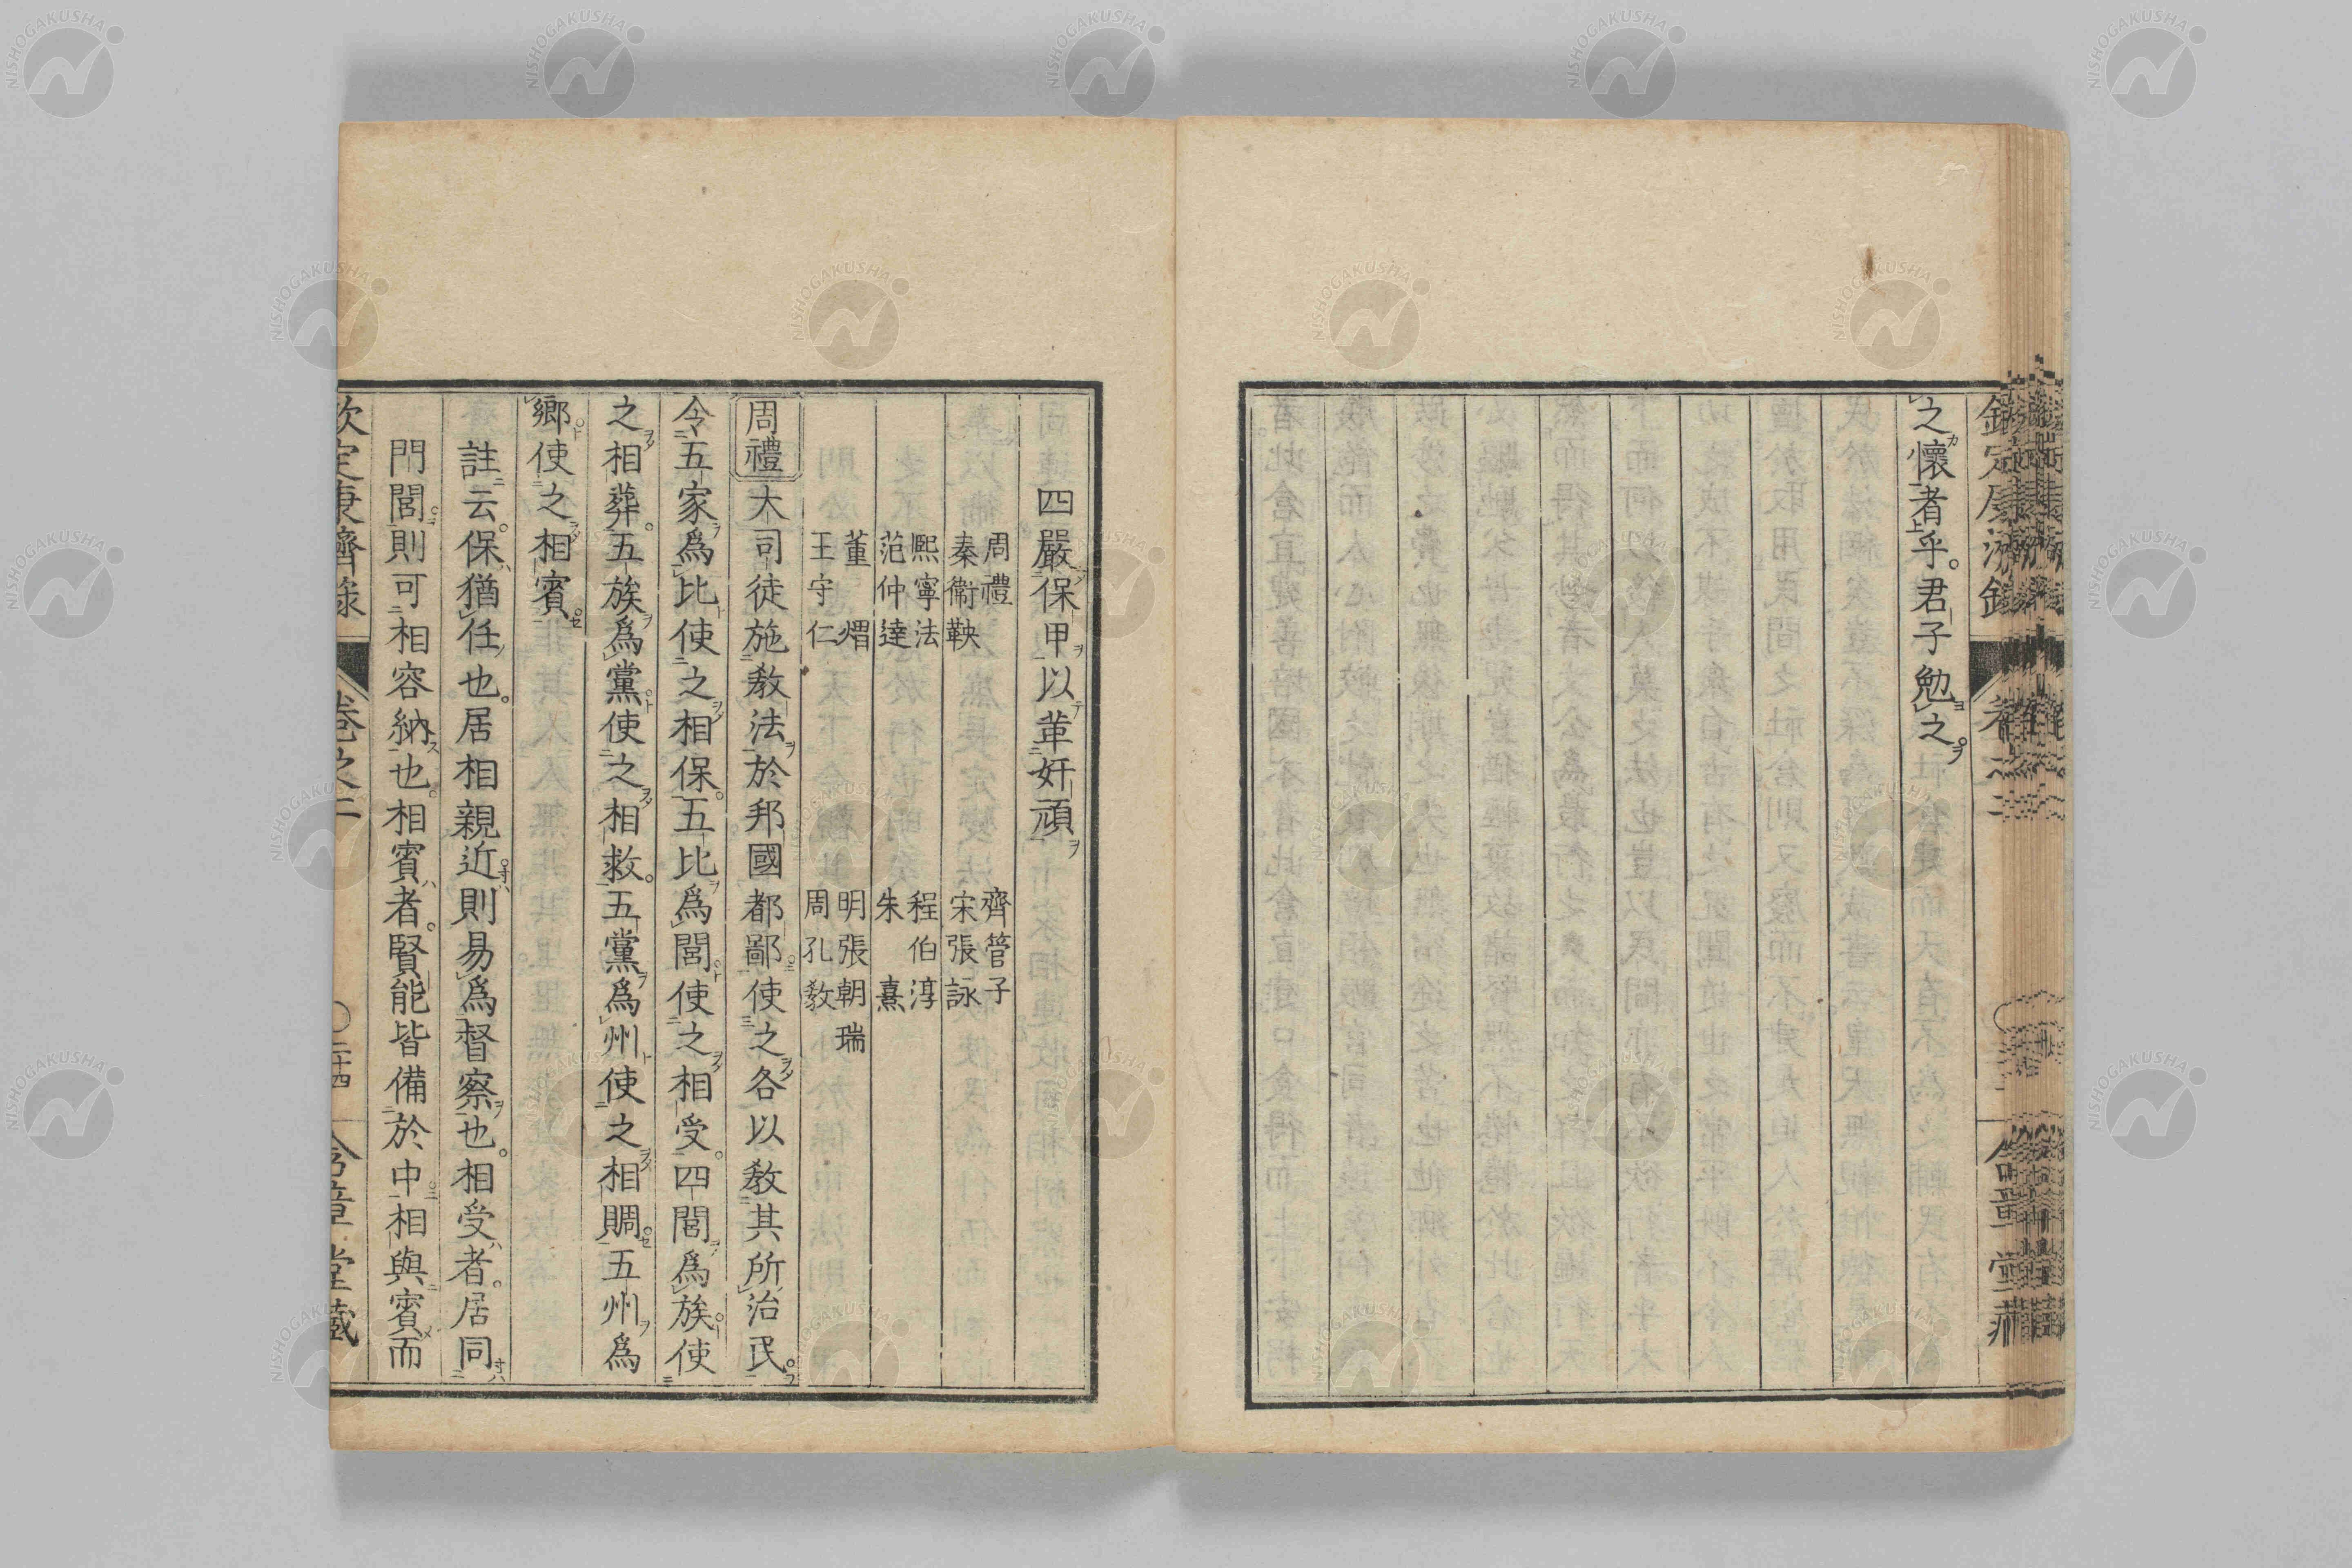 之懷者乎。君子勉之。
四嚴保甲以革奸頑
周禮 齊管子
秦衞鞅 宋張詠
熙寧法 程伯淳
范仲達 朱熹
董熠 明張朝瑞
王守仁 周孔教
周禮大司徒施教法於邦國都鄙使之各以教其所治民。
令五家爲比使之相保。五比爲閭使之相受。四閭爲族使
之相葬。五族爲黨使之相救。五黨爲州使之相賙。五州爲
鄉使之相賓。
註云。保猶任也。居相親近則易爲督察也。相受者。居同
門閭則可相容納也。相賓者。賢能皆備於中相與賓而
欽定康濟錄 卷之二 〇二十四 含章堂藏
NISHOGAKUSHA